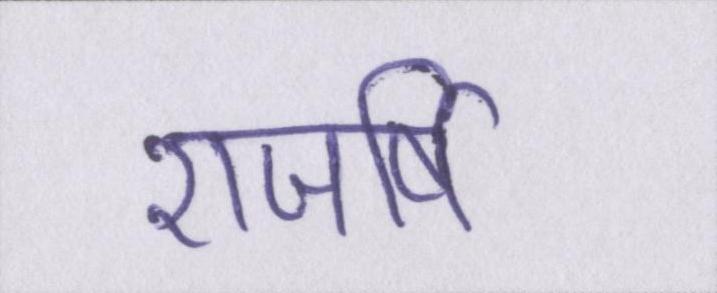 राजर्षि